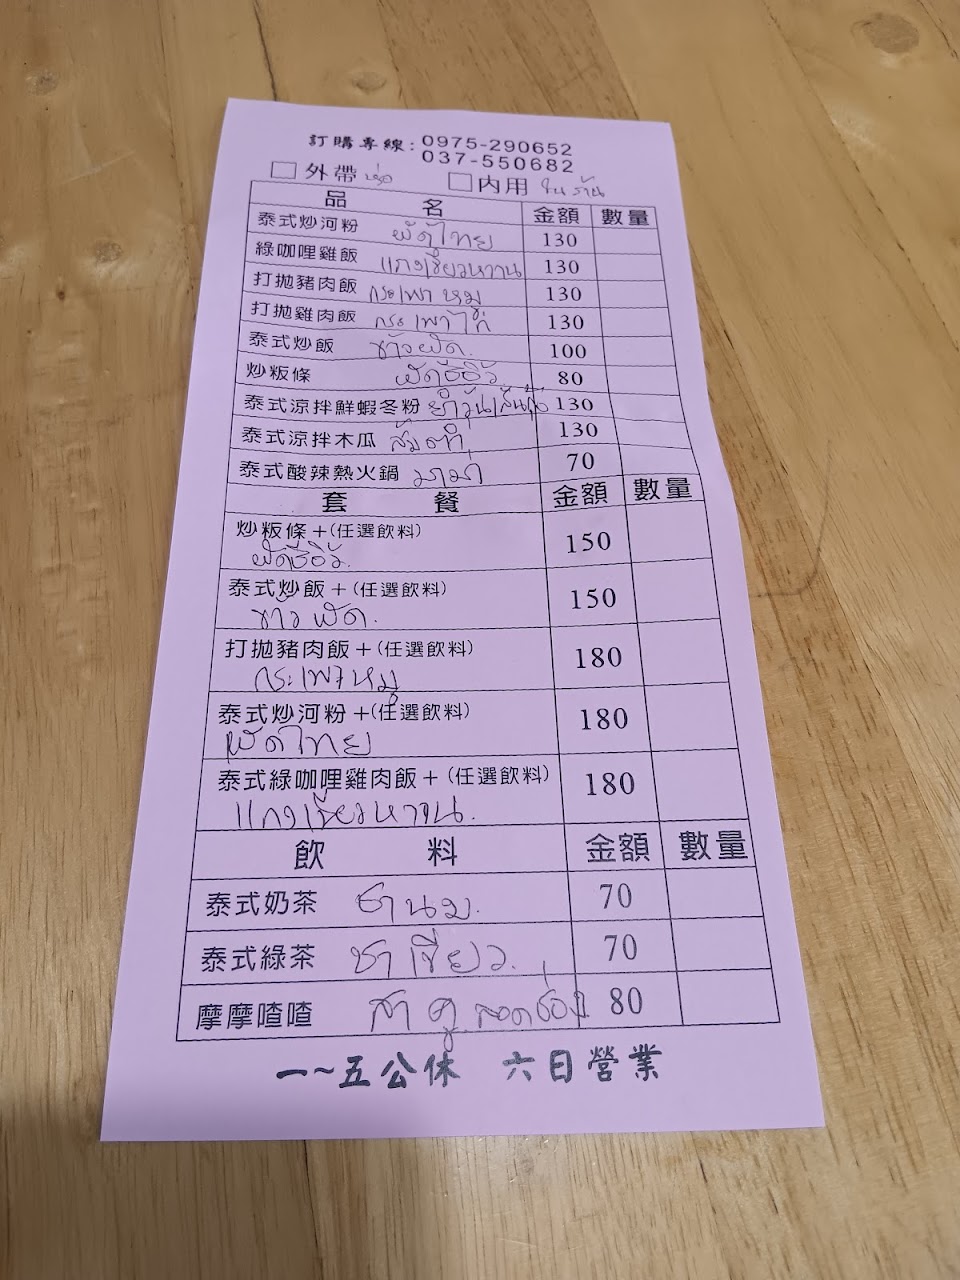 訂購專線: 0975-290652
037-550682
□ 外帶 ห่อ □ 內用 ในร้าน
品 名 金額 數量
泰式炒河粉 ผัดไทย 130
綠咖哩雞飯 แกงเขียวหวาน 130
打拋豬肉飯 กระเพาหมู 130
打拋雞肉飯 กระเพาไก่ 130
泰式炒飯 ข้าวผัด. 100
炒粄條 ผัดซีอิ้ว 80
泰式涼拌鮮蝦冬粉 ยำวุ้นเส้นกุ้ง 130
泰式涼拌木瓜 ส้มตำ 130
泰式酸辣熱火鍋 มาม่า 70
套 餐 金額 數量
炒粄條+(任選飲料) 150
ผัดซีอิ้ว.
泰式炒飯+(任選飲料) 150
ข้าวผัด.
打拋豬肉飯+(任選飲料) 180
กระเพาหมู
泰式炒河粉+(任選飲料) 180
ผัดไทย
泰式綠咖哩雞肉飯+(任選飲料) 180
แกงเขียวหวาน.
飲 料 金額 數量
泰式奶茶 ชานม. 70
泰式綠茶 ชาเขียว. 70
摩摩喳喳 สาคูลอดช่อง 80
一~五公休 六日營業